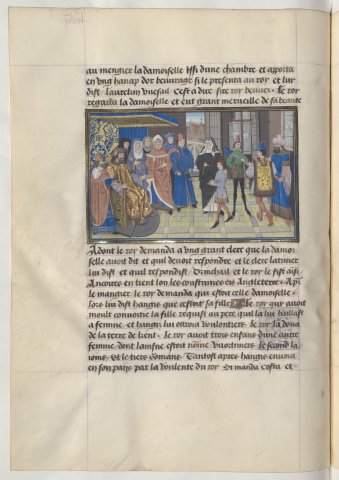 au mengier la damoiselle issi dune chambre et apporta
en vng hanap dor beuurage si le presenta au roy et lui
dist Laurelin vuesail cest a dire sire roy beuuez. Le roy
regarda la damoiselle et eut grant merueille de sa beaute
Adont le roy demanda a vng grant clerc que la damoi
selle auoit dit et quil deuoit respondre et le clerc latinier
lui dist et quil respondist Drinchail et le roy le fist ainsi
Ancoires en tient lon les coustumes en Angleterre. Apres
le mangier le roy demanda que estoit celle damoiselle.
lors lui dist hangis que cestoit sa fille le roy qui auoit
moult conuoitie la fille requist au pere quil la lui baillast
a femme, et hangis lui ottroia voulentiers. le roy la doua
de la terre de kent. le roy auoit trois enfans dune autre
femme, dont lainsne estoit nomme le second
et le tiers Tantost apres hangis enuoia
en son pays par la voulente du roy Si manda et